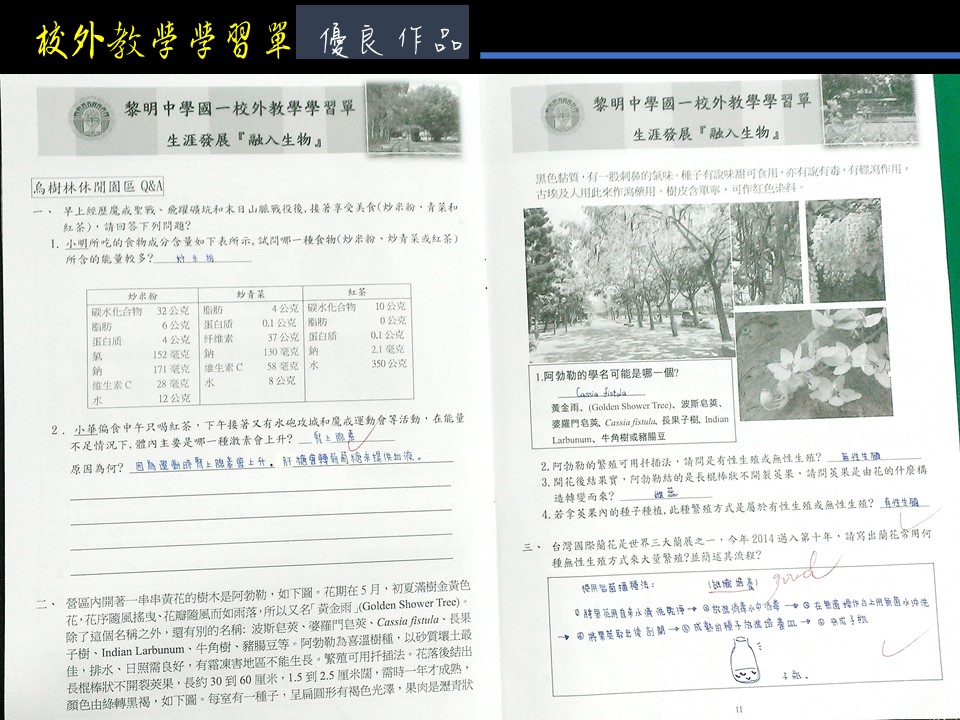 校外教學學習單 優良作品
黎明中學國一校外教學學習單
生涯發展『融入生物』
烏樹林休閒園區 Q&A
一、 早上經歷魔戒聖戰、飛躍礦坑和末日山脈戰役後,接著享受美食(炒米粉、青菜和
紅茶),請回答下列問題?
1. 小明所吃的食物成分含量如下表所示,試問哪一種食物(炒米粉、炒青菜或紅茶)
所含的能量較多? 炒米粉
炒米粉 炒青菜 紅茶
碳水化合物 32 公克 脂肪 4 公克 碳水化合物 10 公克
脂肪 6 公克 蛋白质 0.1 公克 脂肪 0 公克
蛋白质 4 公克 纤维素 37 公克 蛋白质 0.1 公克
氯 152 毫克 鈉 130 毫克 鈉 2.1 毫克
鈉 171 毫克 維生素 C 58 毫克 水 350 公克
維生素 C 28 毫克 水 8 公克
水 12 公克
2. 小華偏食中午只喝紅茶,下午接著又有水砲攻城和魔戒運動會等活動,在能量
不足情況下,體內主要是哪一種激素會上升? 腎上腺素
原因為何? 因為運動時腎上腺素會上升。肝醣會轉葡萄糖來提供血液。
二、 營區內開著一串串黃花的樹木是阿勃勒,如下圖。花期在 5 月,初夏滿樹金黃色
花,花序隨風搖曳、花瓣隨風而如雨落,所以又名「黃金雨」(Golden Shower Tree)。
除了這個名稱之外,還有別的名稱: 波斯皂莢、婆羅門皂莢、Cassia fistula、長果
子樹、Indian Larbunum、牛角樹、豬腸豆等。阿勃勒為喜溫樹種,以砂質壤土最
佳,排水、日照需良好,有霜凍害地區不能生長。繁殖可用扦插法。花落後結出
長棍棒狀不開裂莢果,長約 30 到 60 厘米,1.5 到 2.5 厘米闊,需時一年才成熟,
顏色由綠轉黑褐,如下圖。每室有一種子,呈扁圓形有褐色光澤,果肉是瀝青狀
黎明中學國一校外教學學習單
生涯發展『融入生物』
黑色黏質,有一股刺鼻的氣味。種子有說味甜可食用,亦有說有毒,有輕瀉作用,
古埃及人用此來作瀉藥用。樹皮含單寧,可作紅色染料。
1.阿勃勒的學名可能是哪一個?
Cassia fistula
黃金雨、(Golden Shower Tree)、波斯皂莢、
婆羅門皂莢、Cassia fistula、長果子樹、Indian
Larbunum、牛角樹或豬腸豆
2. 阿勃勒的繁殖可用扦插法,請問是有性生殖或無性生殖? 無性生殖
3. 開花後結果實,阿勃勒結的是長棍棒狀不開裂莢果,請問莢果是由花的什麼構
造轉變而來? 雌蕊
4. 若拿莢果內的種子種植,此種繁殖方式是屬於有性生殖或無性生殖? 有性生殖
三、 台灣國際蘭花是世界三大蘭展之一,今年 2014 邁入第十年,請寫出蘭花常用何
種無性生殖方式來大量繁殖?並簡述其流程?
使用無菌播種法: (組織培養) good
①將果莢用自來水清洗乾淨 → ②放進消毒水中消毒 → ③在無菌操作台上用無菌水沖洗
→ ④將果莢取出後剖開 → ⑤成熟的種子放進培養皿 → ⑥完成子瓶
子瓶。
11